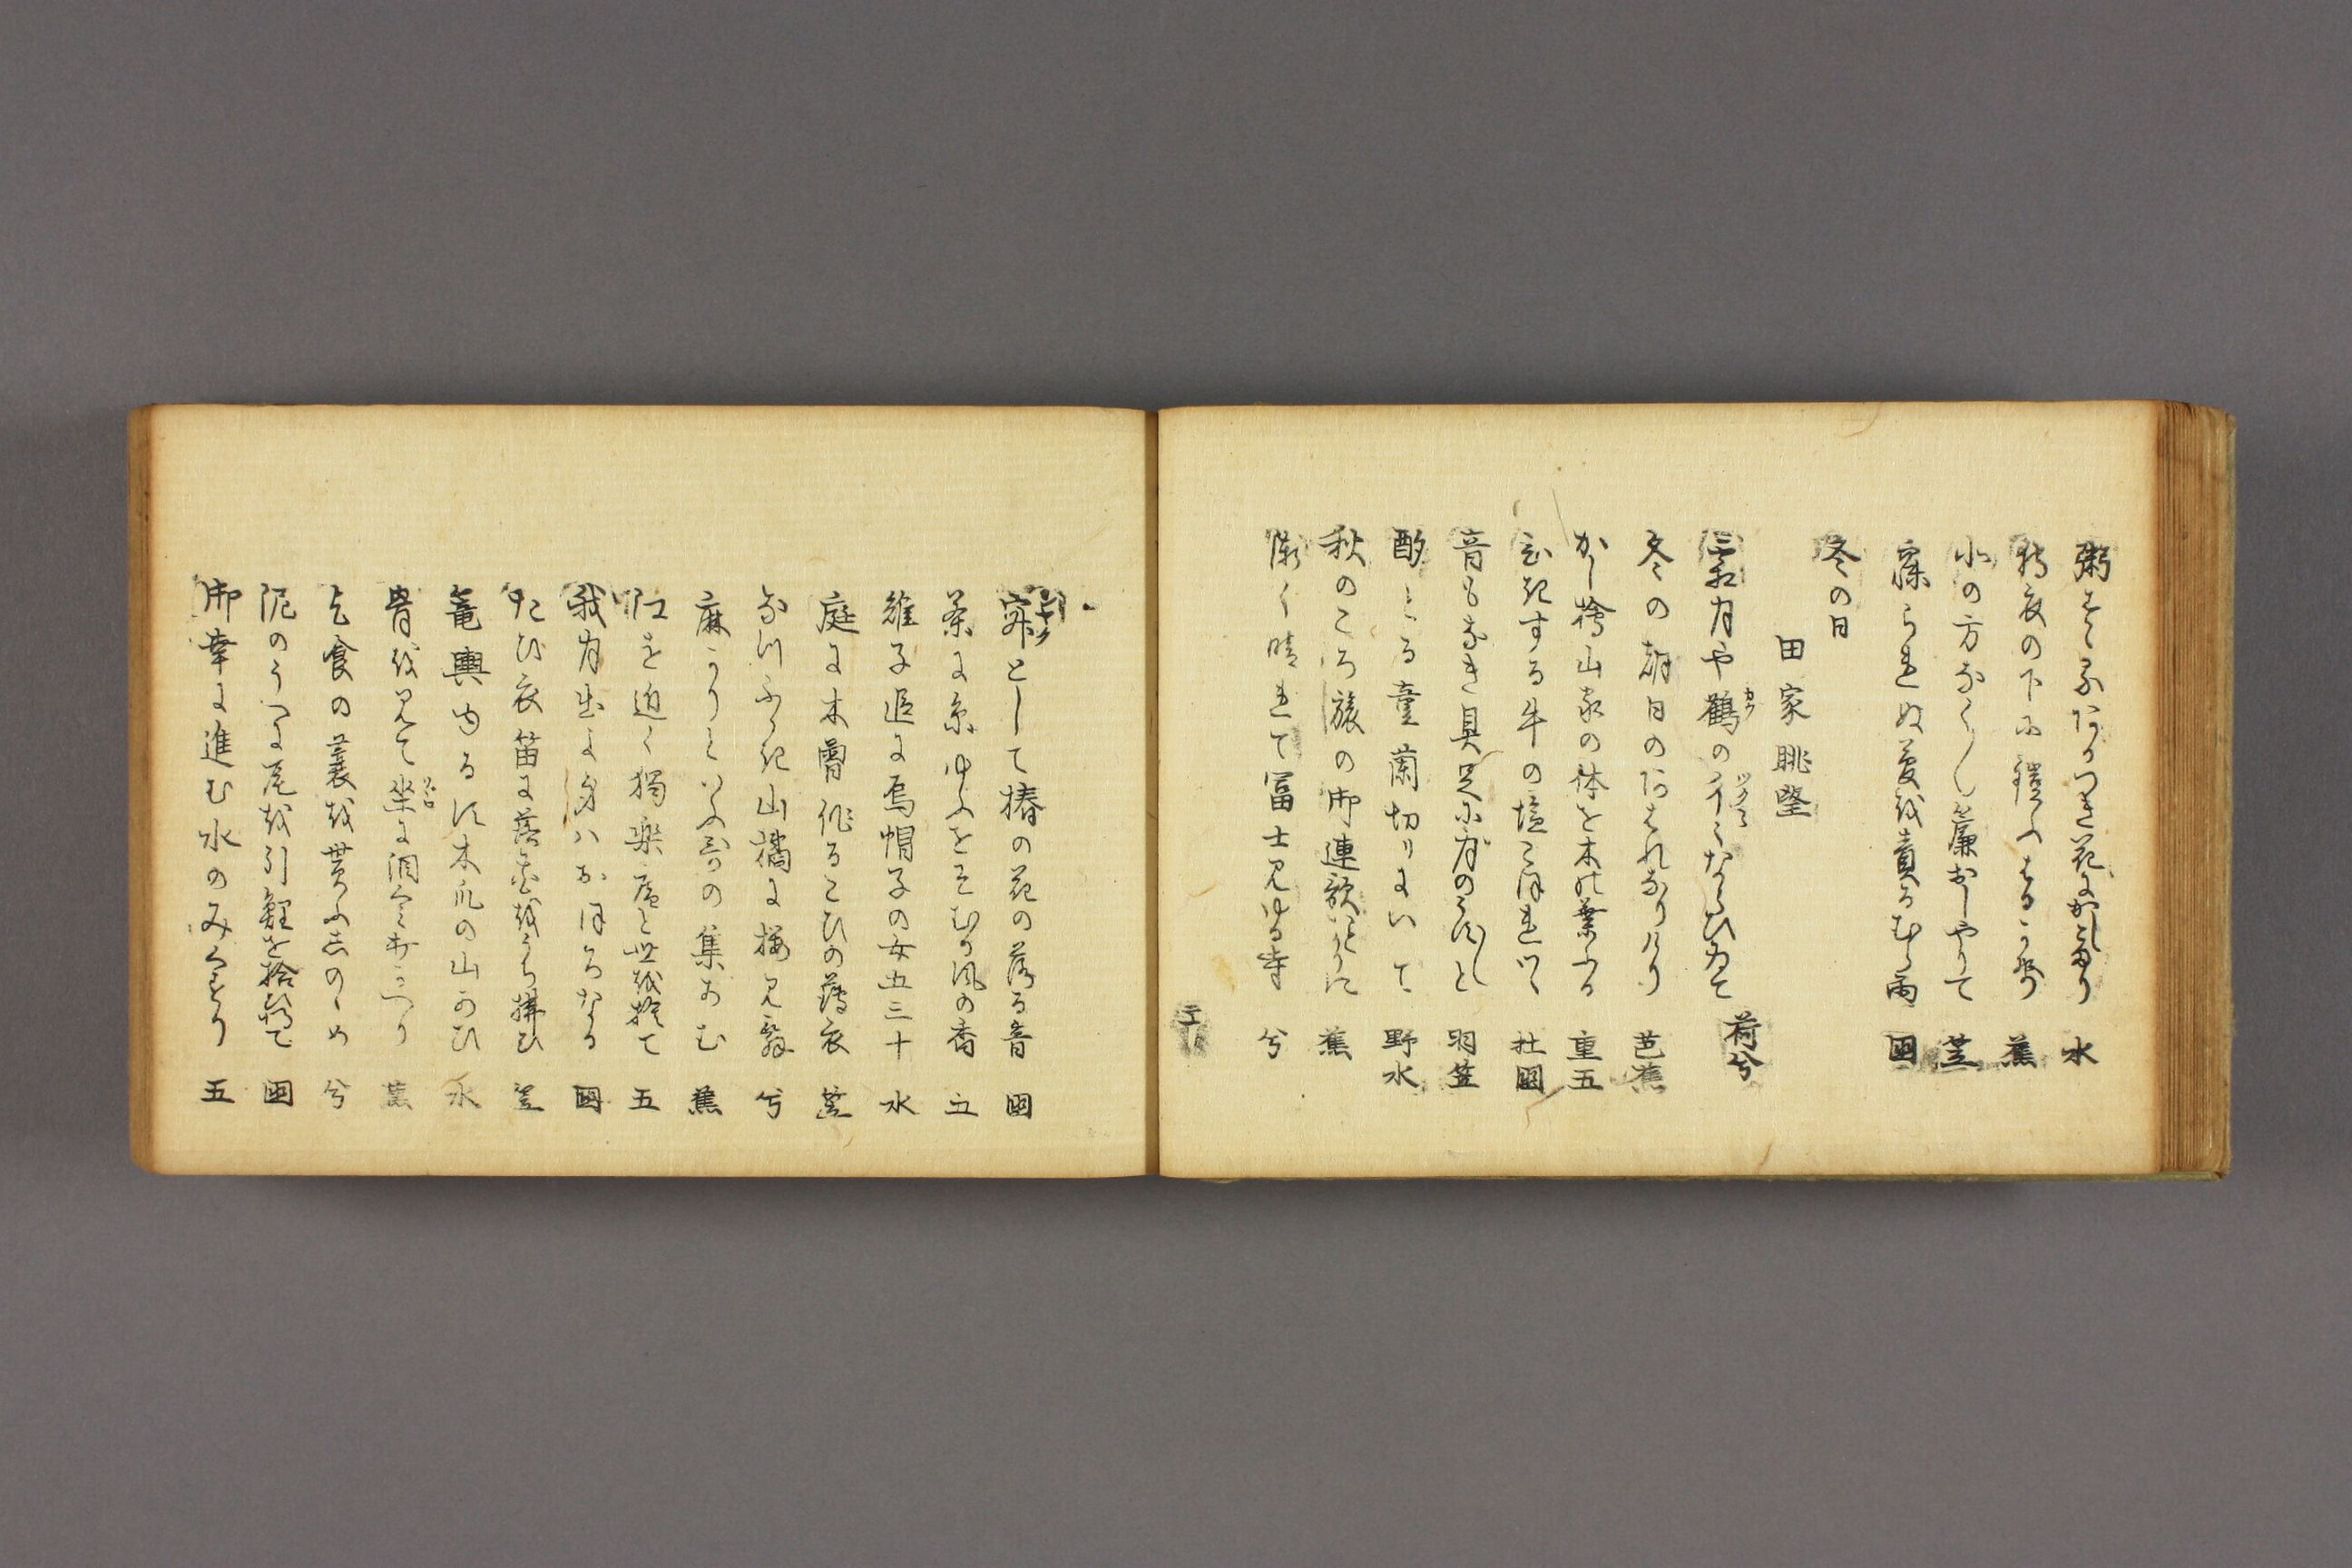 粥すゝるあかつき花にかしこまり 水
狩衣の下に鎧ふはる風 蕉
北の方なく〱簾おしやりて 笠
寐られぬ夢を責るむら雨 国
冬の日
田家眺望
霜月や鶴の彳々ならひゐて 荷兮
冬の朝日のあはれなりけり 芭蕉
かし檜山家の体を木の葉ふる 重五
ひきする牛の塩こほれつゝ 杜国
音もなき具足に月のうす〱と 羽笠
酌とる童蘭切リにいて 野水
秋のころ旅の御連歌いとかりに 蕉
漸く晴れて冨士見ゆる寺 兮
寂として椿の花の落る音 国
茶に糸ゆふをそむる風の香 五
雉子追に烏帽子の女五三十 水
庭に木曽作るこひの薄衣 笠
なつふかき山橘に桜見ん 兮
麻かりといふ哥の集あむ 蕉
江を近く独楽庵と世を捨て 五
我月出よ身ハおほろなる 国
たひ衣笛に落花をうち払ひ 笠
篭輿ゆるす木瓜の山あひ 水
骨を見て坐に泪くみうちかへり 蕉
乞食の蓑を貰ふしのゝめ 兮
泥のうへに尾を引鯉を拾ひ得て 国
御幸に進む水のみくすり 五